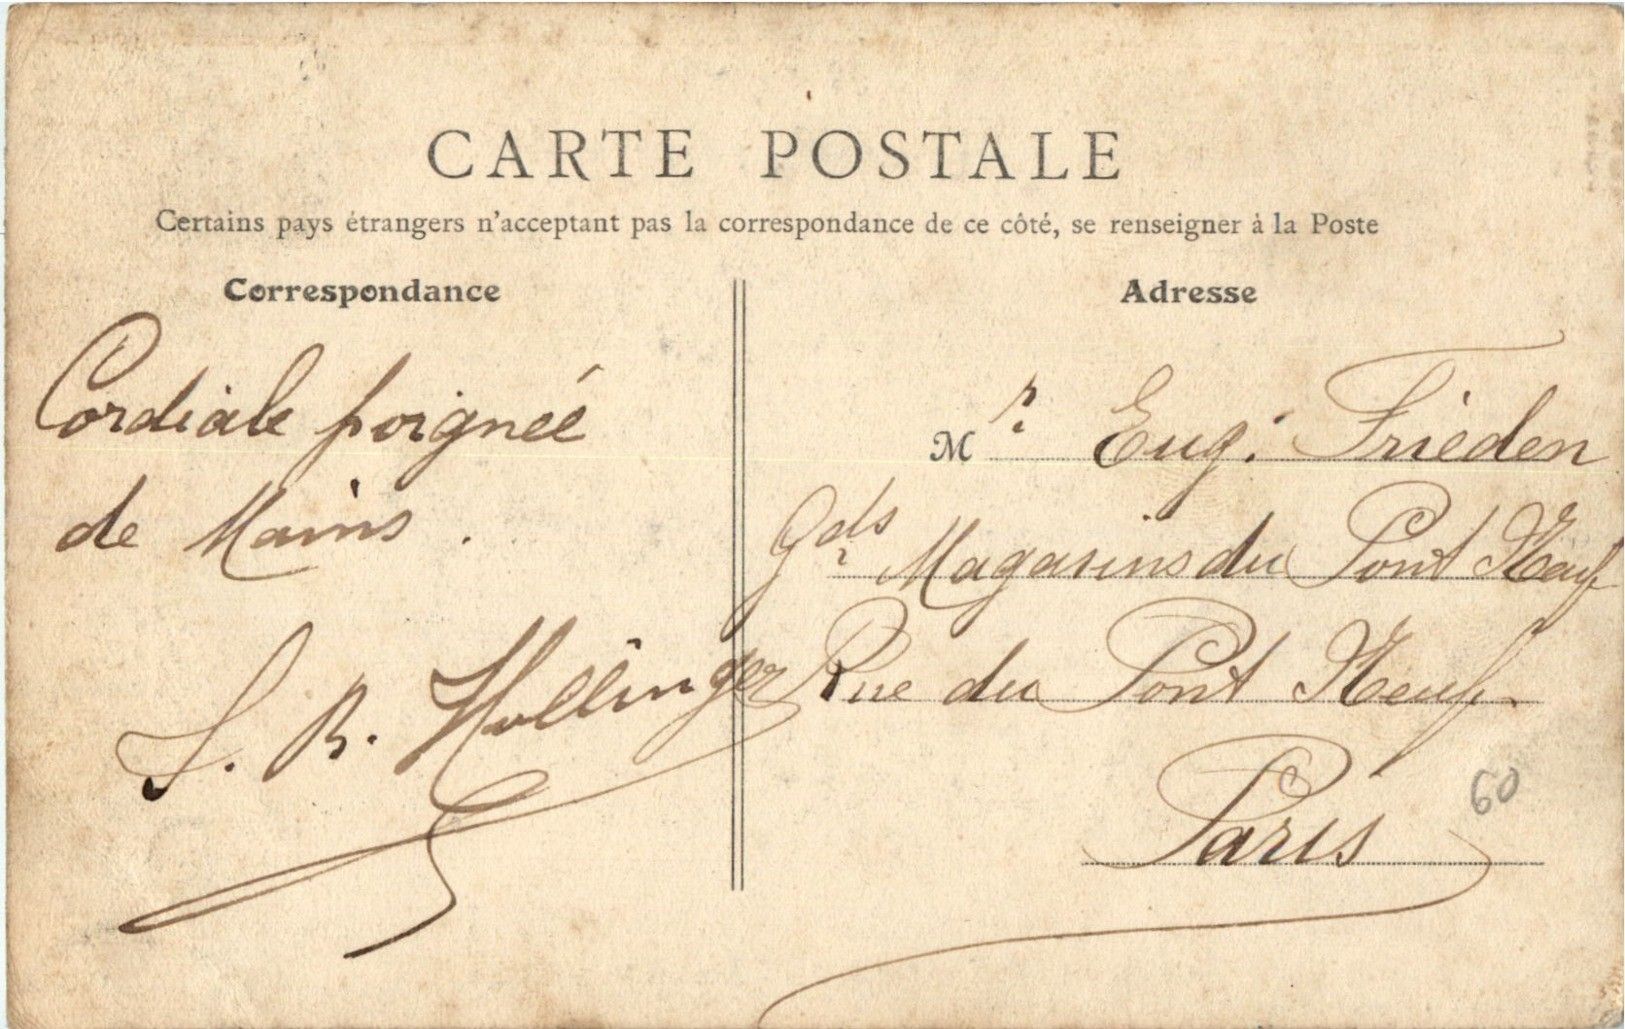 CARTE POSTALE
Certains pays étrangers n'acceptant pas la correspondance de ce côté, se renseigner à la Poste
Correspondance
Cordiale poignée
de Mains.
S. B. Hollinger
Adresse
Mr Eug. Frieden
Gds Magasins du Pont Neuf
Rue du Pont Neuf.
Paris
60